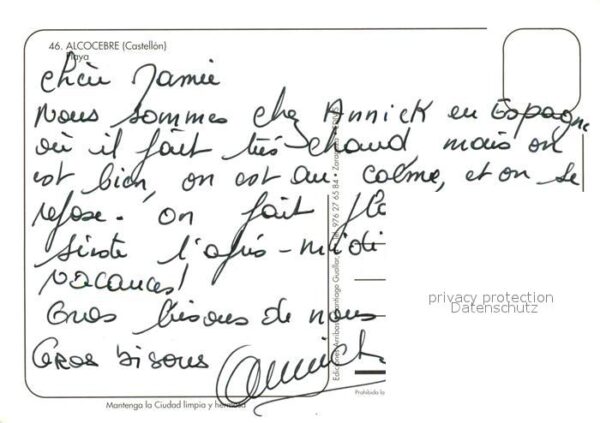 46. ALCOCEBRE (Castellón)
Playa
Chère Mamie
Nous sommes chez Annick en Espagne
où il fait très chaud mais on
est bien, on est au calme, et on se
repose. On fait
sieste l'après-midi
vacances!
Gros bisous de nous
Gros bisous Annick
Mantenga la Ciudad limpia y hermosa
Prohibida la
privacy protection
Datenschutz